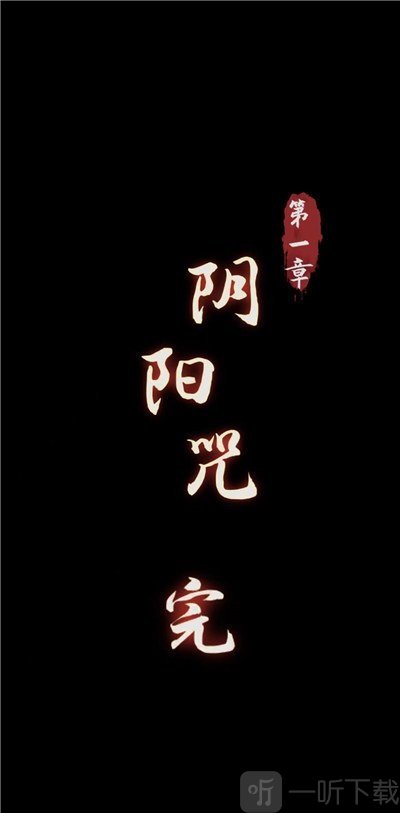 第一章
阴阳咒
完
听 一听下载